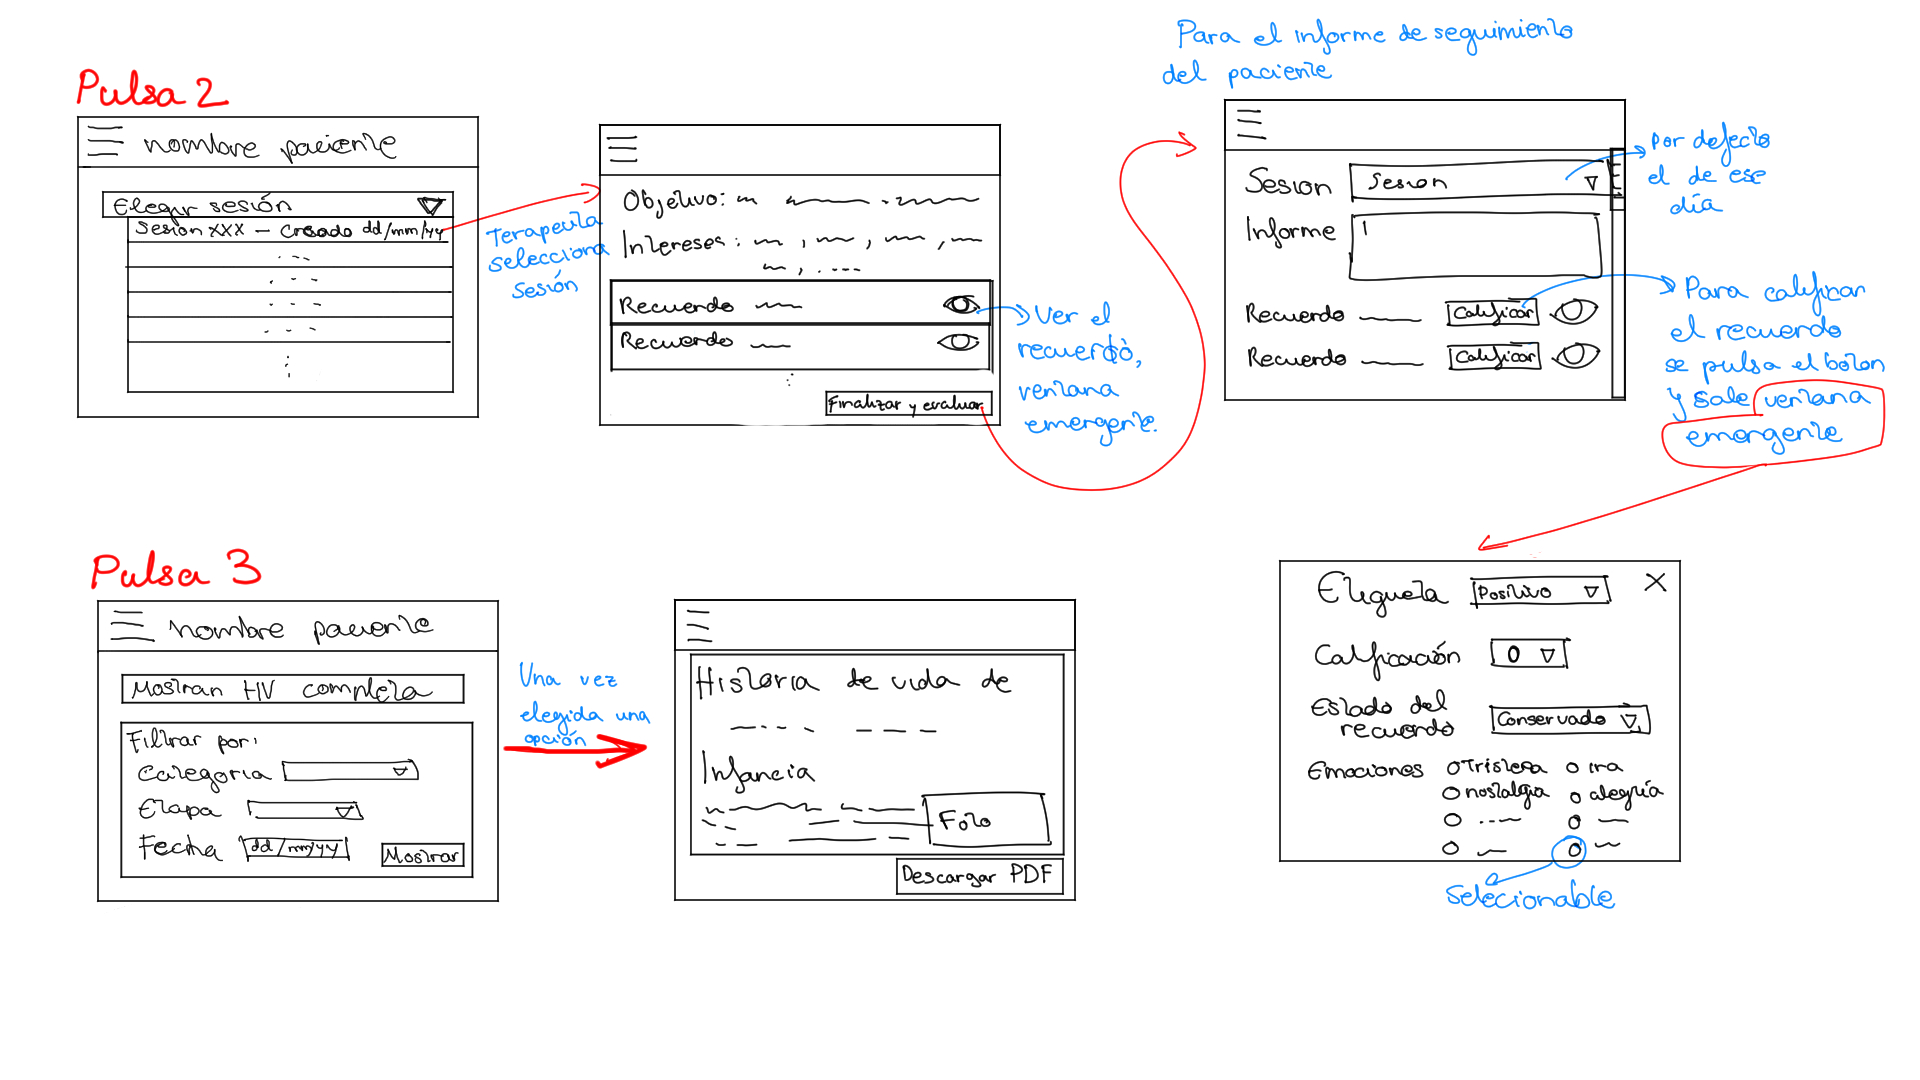 Pulsa 2
nombre paciente
Elegir sesión
Sesion XXX - Creado dd/mm/yy
Terapeuta
selecciona
sesión
Objetivo:
Intereses:
Recuerdo
Recuerdo
Finalizar y evaluar
Ver el
recuerdo,
ventana
emergente.
Para el informe de seguimiento
del paciente
Sesion
Sesion
Informe
Recuerdo
Calificar
Recuerdo
Calificar
Por defecto
el de ese
día
Para calificar
el recuerdo
se pulsa el boton
y sale ventana
emergente
Etiqueta
Positivo
X
Calificación
0
Estado del
recuerdo
Conservado
Emociones
Tristeza
ira
nostalgia
alegría
Selecionable
Pulsa 3
nombre paciente
Mostrar HV completa
Filtrar por:
Categoria
Etapa
Fecha
dd/mm/yy
Mostrar
Una vez
elegida una
opción
Historia de vida de
Infancia
Foto
Descargar PDF